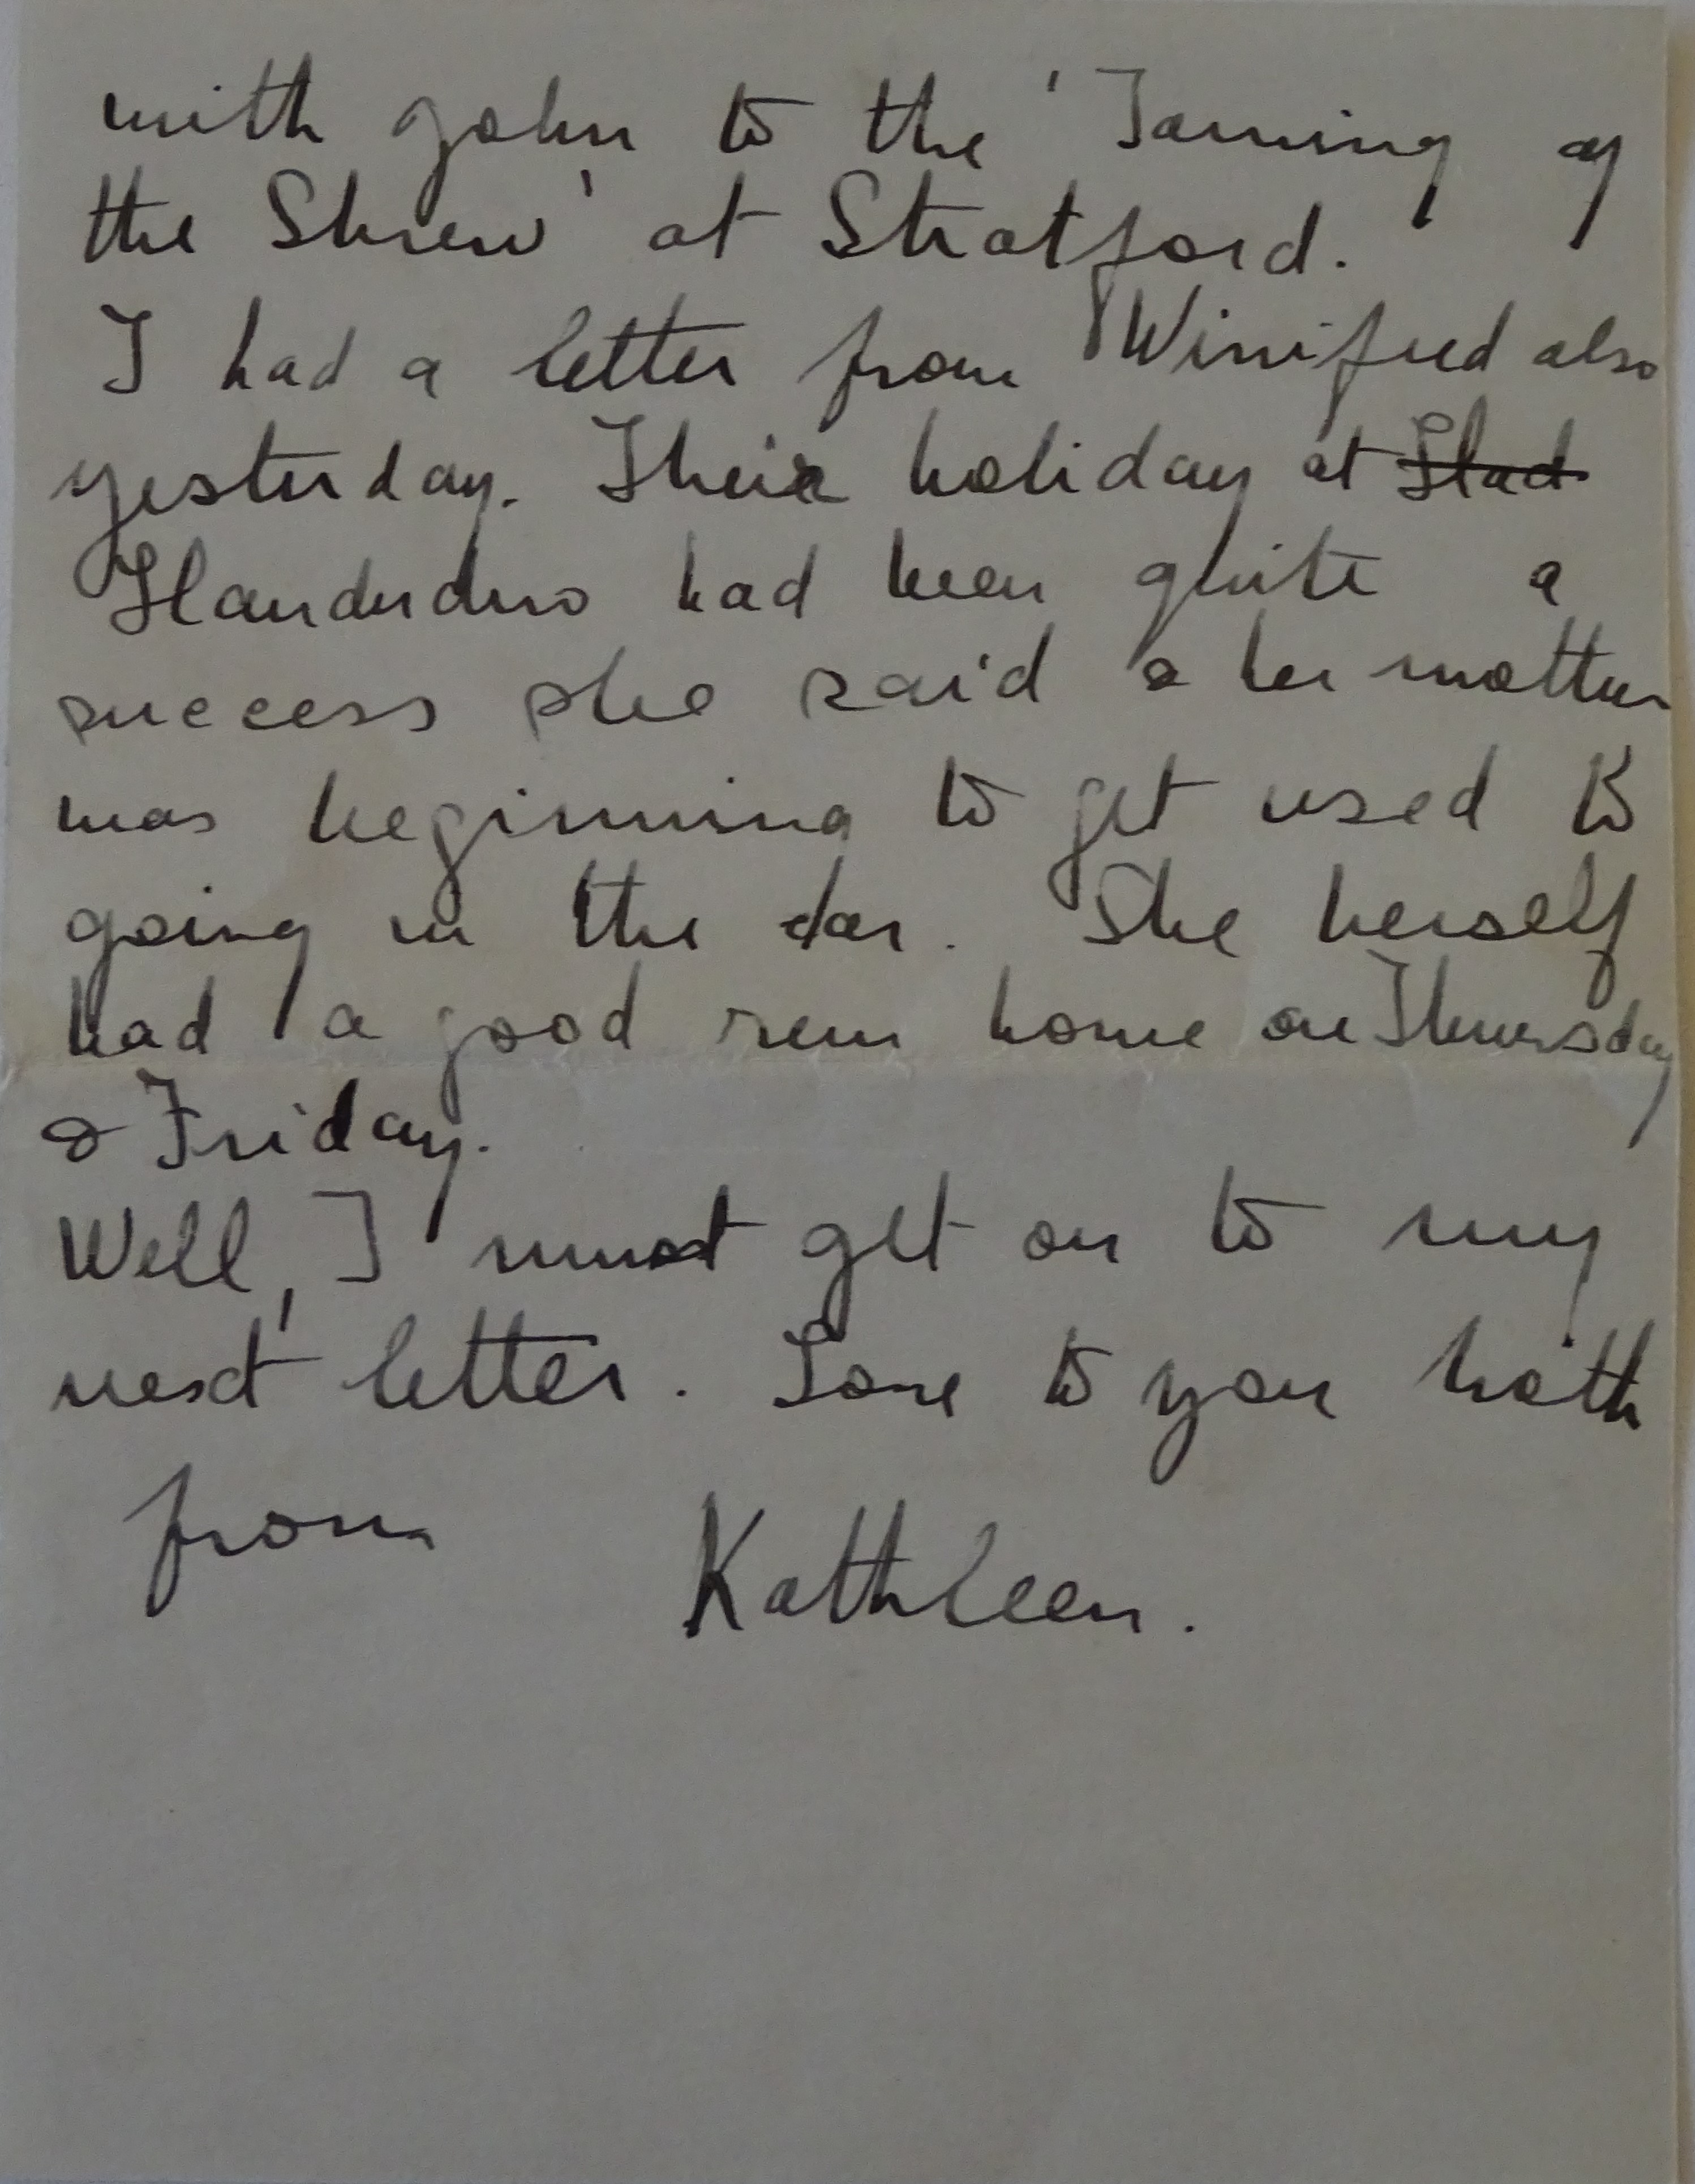 with John to the 'Taming of
the Shrew' at Stratford.
I had a letter from Winifred also
yesterday. Their holiday at
Llandudno had been quite a
success she said & her mother
was beginning to get used to
going in the car. She herself
had a good run home on Thursday
& Friday.
Well, I must get on to my
next letter. Love to you both
from Kathleen.